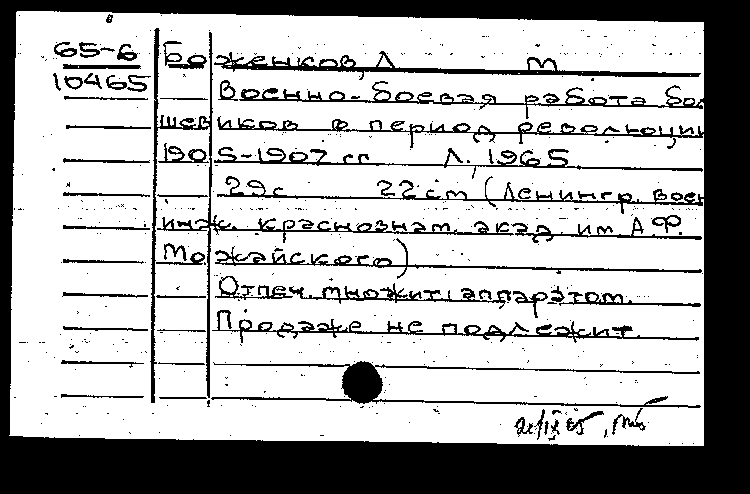 65-6
10465
Боженков, Л М
Военно-боевая работа бол
шевиков в период революции
1905-1907 гг Л., 1965
29с 22 см (Ленингр. воен
инж. краснознам. акад им. А.Ф.
Можайского)
Отпеч. множит. аппаратом.
Продаже не подлежит.